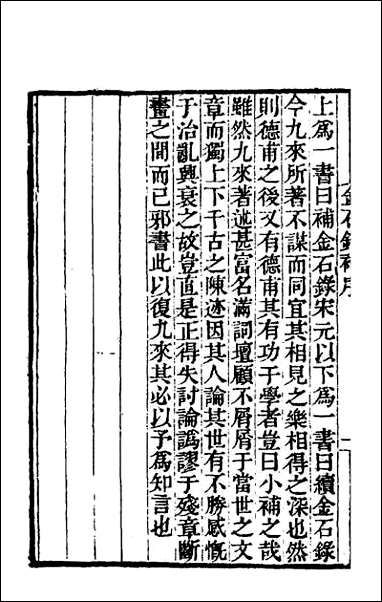 金石錄補序
上爲一書曰補金石錄宋元以下爲一書曰續金石錄
今九來所著不謀而同宜其相見之樂相得之深也然
則德甫之後又有德甫其有功于學者豈曰小補之哉
雖然九來著述甚富名滿詞壇顧不屑屑于當世之文
章而獨上下千古之陳迹因其人論其世有不勝感慨
于治亂興衰之故豈直是正得失討論譌謬于殘章斷
畫之間而已邪書此以復九來其必以予爲知言也